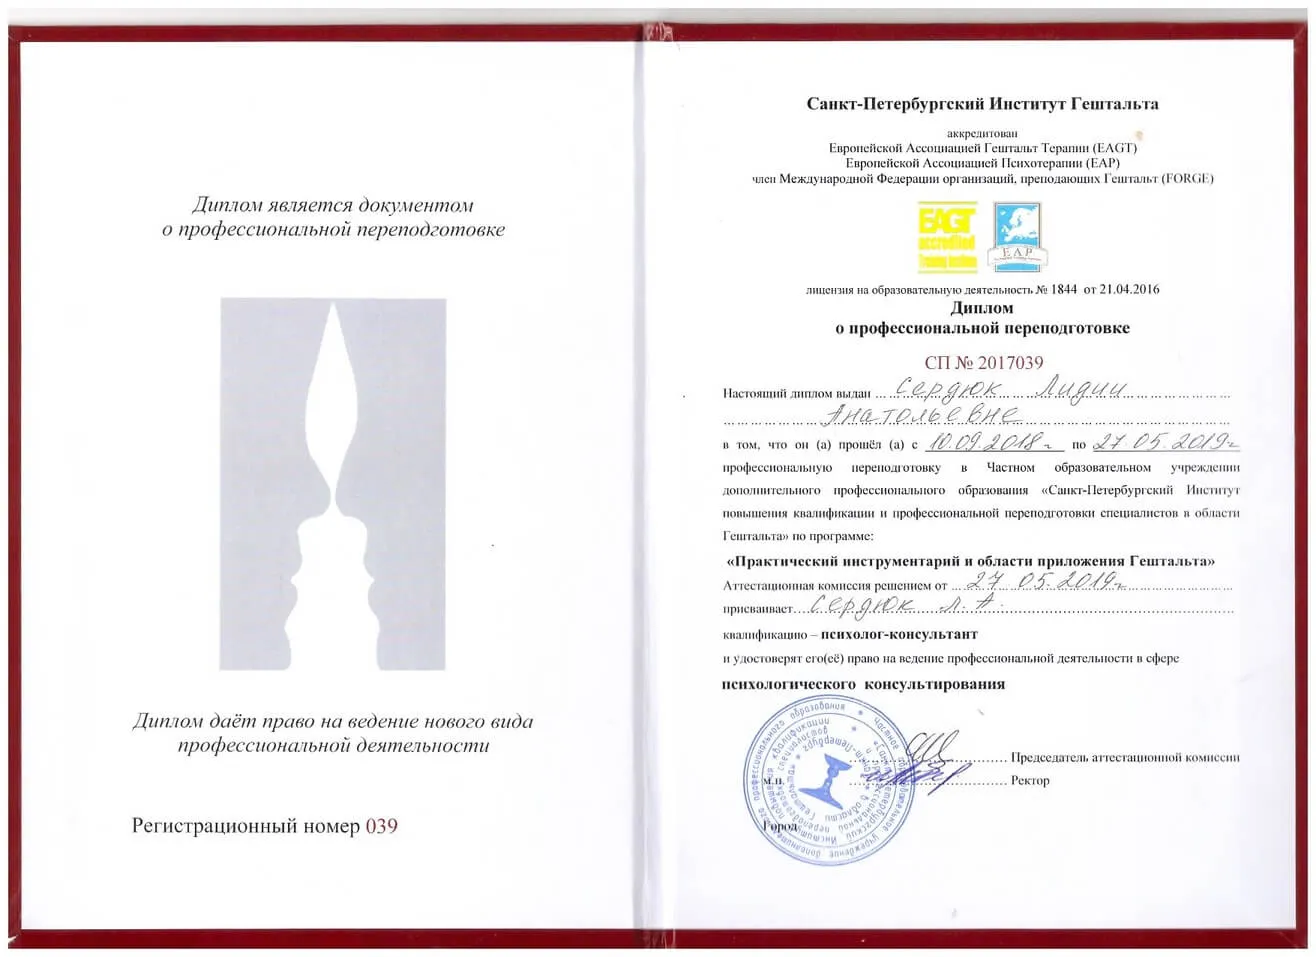 Диплом является документом
о профессиональной переподготовке
Диплом даёт право на ведение нового вида
профессиональной деятельности
Регистрационный номер 039
Санкт-Петербургский Институт Гештальта
аккредитован
Европейской Ассоциацией Гештальт Терапии (EAGT)
Европейской Ассоциацией Психотерапии (EAP)
член Международной Федерации организаций, преподающих Гештальт (FORGE)
EAGT
accredited
Training Institute
EAP
лицензия на образовательную деятельность № 1844 от 21.04.2016
Диплом
о профессиональной переподготовке
СП № 2017039
Настоящий диплом выдан Сердюк Лидии
Анатольевне
в том, что он (а) прошёл (а) с 10.09.2018г по 27.05.2019г
профессиональную переподготовку в Частном образовательном учреждении
дополнительного профессионального образования «Санкт-Петербургский Институт
повышения квалификации и профессиональной переподготовки специалистов в области
Гештальта» по программе:
«Практический инструментарий и области приложения Гештальта»
Аттестационная комиссия решением от 27 05.2019г
присваивает Сердюк Л.А.
квалификацию – психолог-консультант
и удостоверят его(её) право на ведение профессиональной деятельности в сфере
психологического консультирования
Председатель аттестационной комиссии
м.п. Ректор
Город
Частное образовательное учреждение дополнительного профессионального образования
«Санкт-Петербургский Институт повышения квалификации
и профессиональной переподготовки специалистов
в области Гештальта»